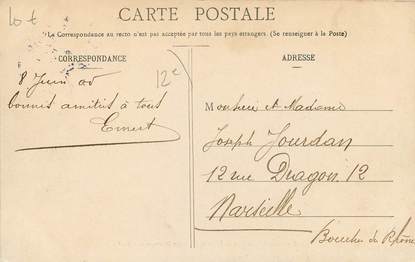 10 €
CARTE POSTALE
La Correspondance au recto n'est pas acceptée par tous les pays étrangers. (Se renseigner à la Poste)
CORRESPONDANCE
8 Juin 05
bonnes amitiés à tous
Ernest
12c
ADRESSE
Monsieur et Madame
Joseph Jourdan
12 rue Dragon 12
Marseille
Bouches du Rhône